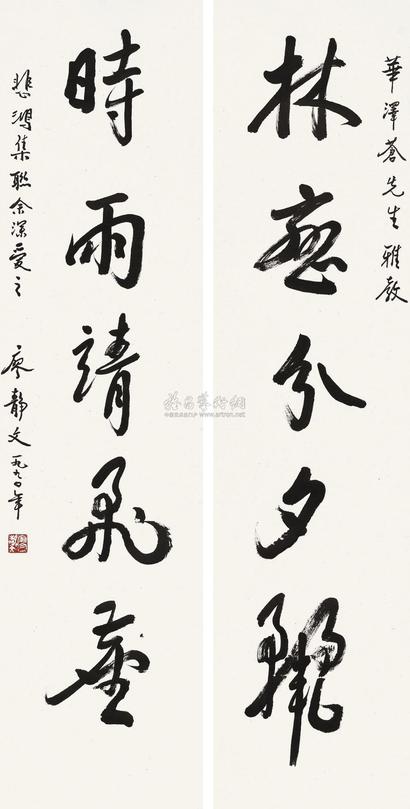 華澤蒼先生雅教
林分夕
時雨靖飛塵
悲鴻集聯余深愛之
廖靜文一九九〇年
雅昌藝術網
www.artron.net